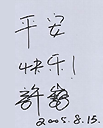 平安
快乐!
2005.8.15.